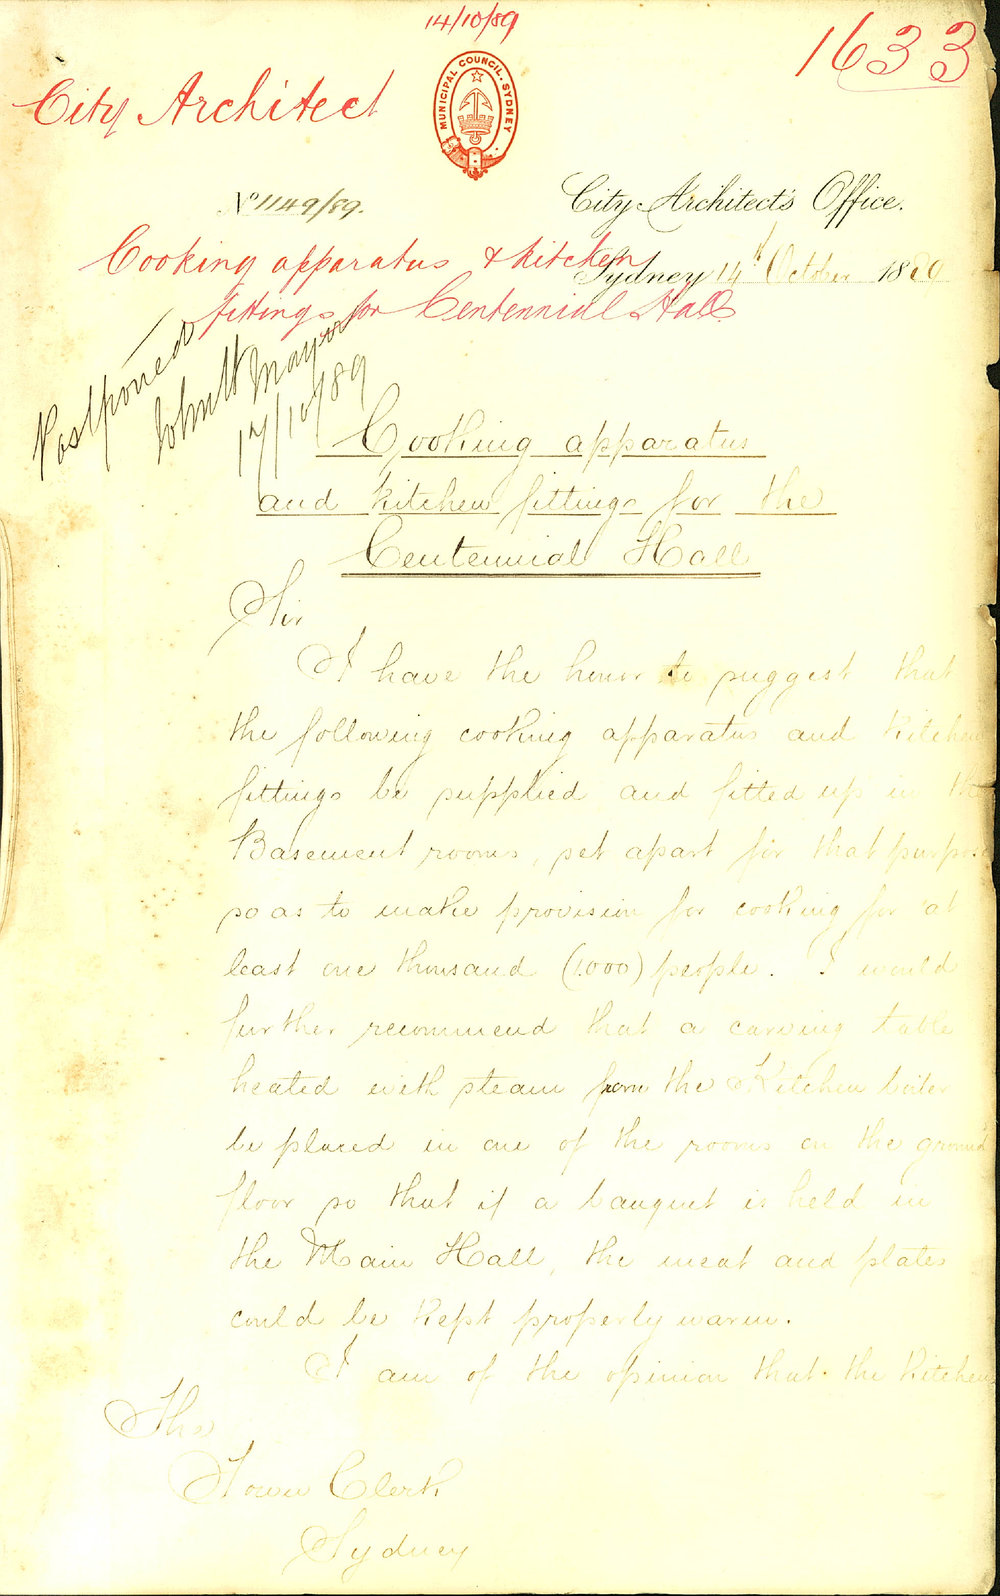 14/10/89
1633
City Architect
MUNICIPAL COUNCIL. SYDNEY
No 1149/89.
City Architect's Office.
Cooking apparatus & kitchen
Sydney 14th October 1889
fittings for Centennial Hall
Postponed
Mayor
17/10/89
Cooking apparatus
and kitchen fittings for the
Centennial Hall
Sir
I have the honor to suggest that
the following cooking apparatus and Kitchen
fittings be supplied and fitted up in the
Basement rooms, set apart for that purpose
so as to make provision for cooking for at
least one thousand (1.000) people. I would
further recommend that a carving table
heated with steam from the Kitchen boiler
be placed in one of the rooms on the ground
floor so that if a banquet is held in
the Main Hall, the meat and plates
could be kept properly warm.
I am of the opinion that the Kitchen
The
Town Clerk
Sydney